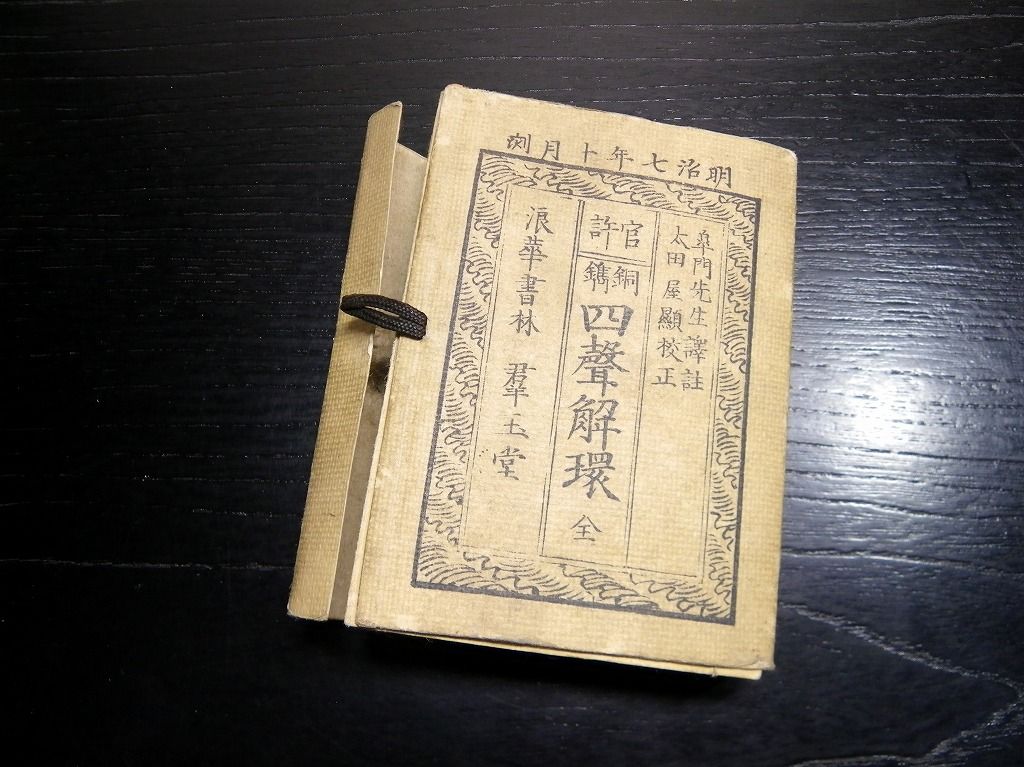 明治七年十月刻
皐門先生譯註
太田屋顯校正
官許
銅鐫
四聲解環 全
浪華書林 羣玉堂